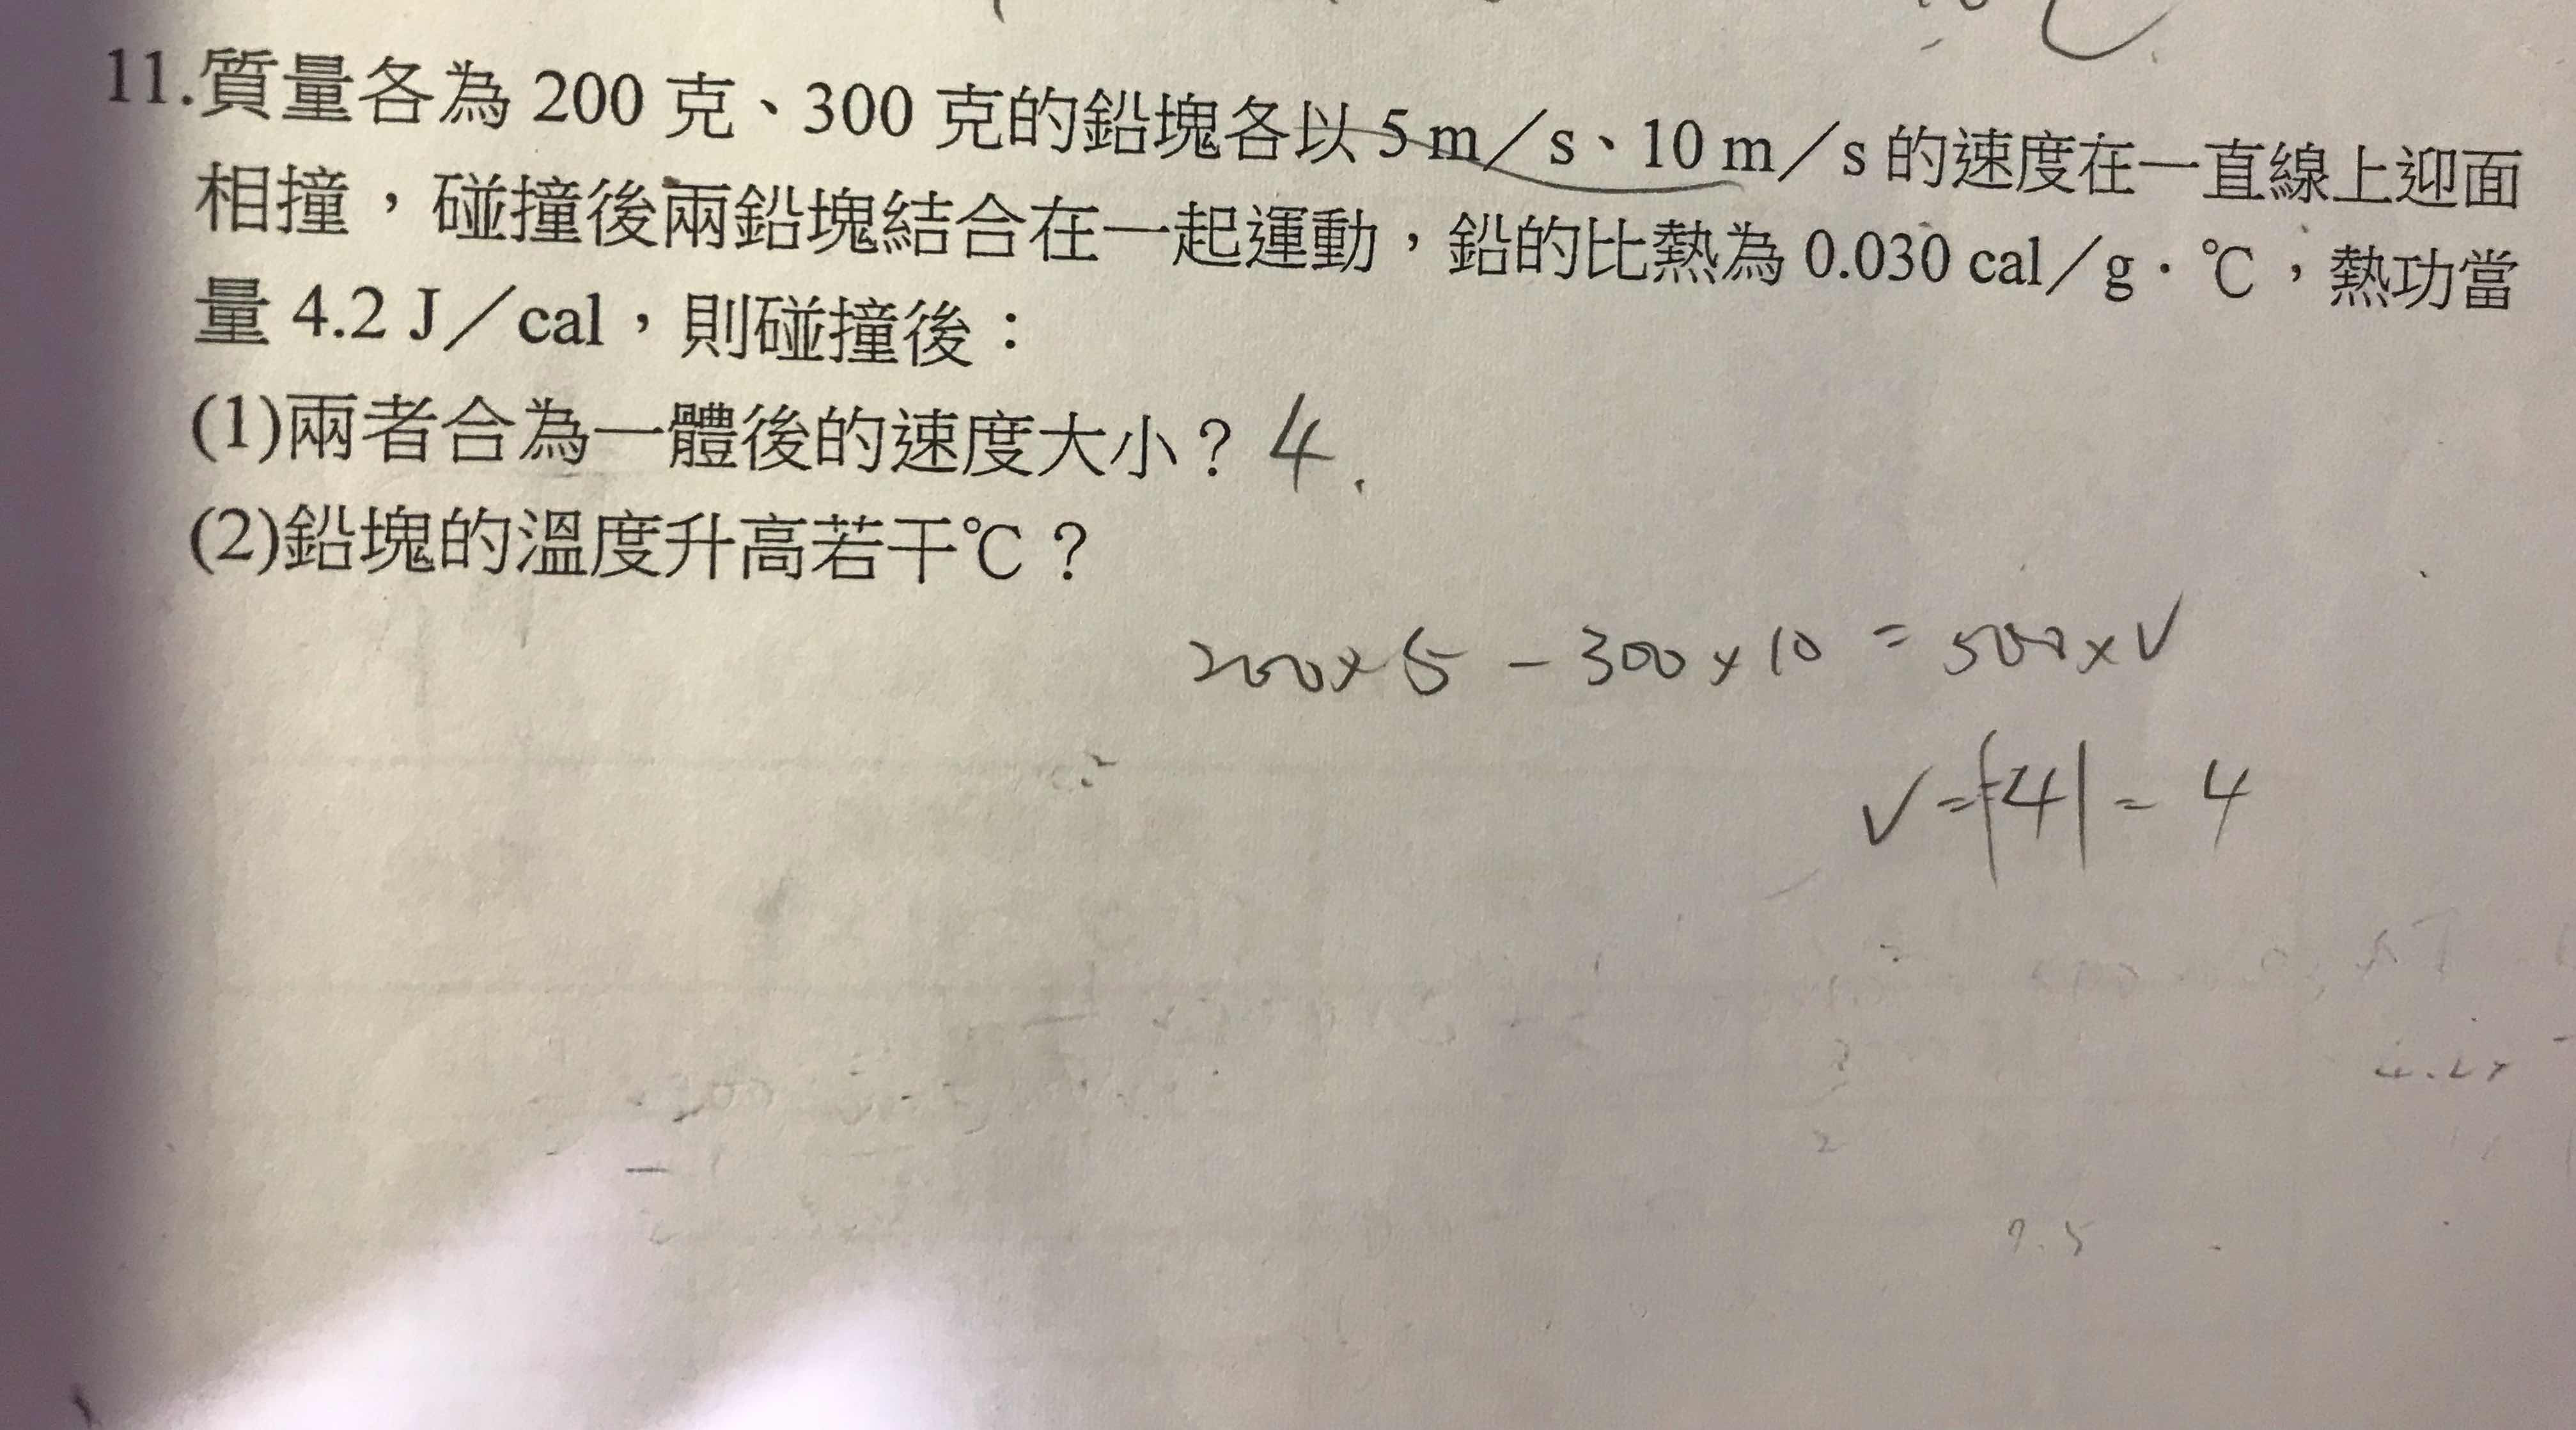 11.質量各為 200 克、300 克的鉛塊各以 5 m／s、10 m／s 的速度在一直線上迎面
相撞，碰撞後兩鉛塊結合在一起運動，鉛的比熱為 0.030 cal／g．℃，熱功當
量 4.2 J／cal，則碰撞後：
(1)兩者合為一體後的速度大小？ 4
(2)鉛塊的溫度升高若干℃？
200×5 - 300×10 = 500×V
V = |-4| = 4